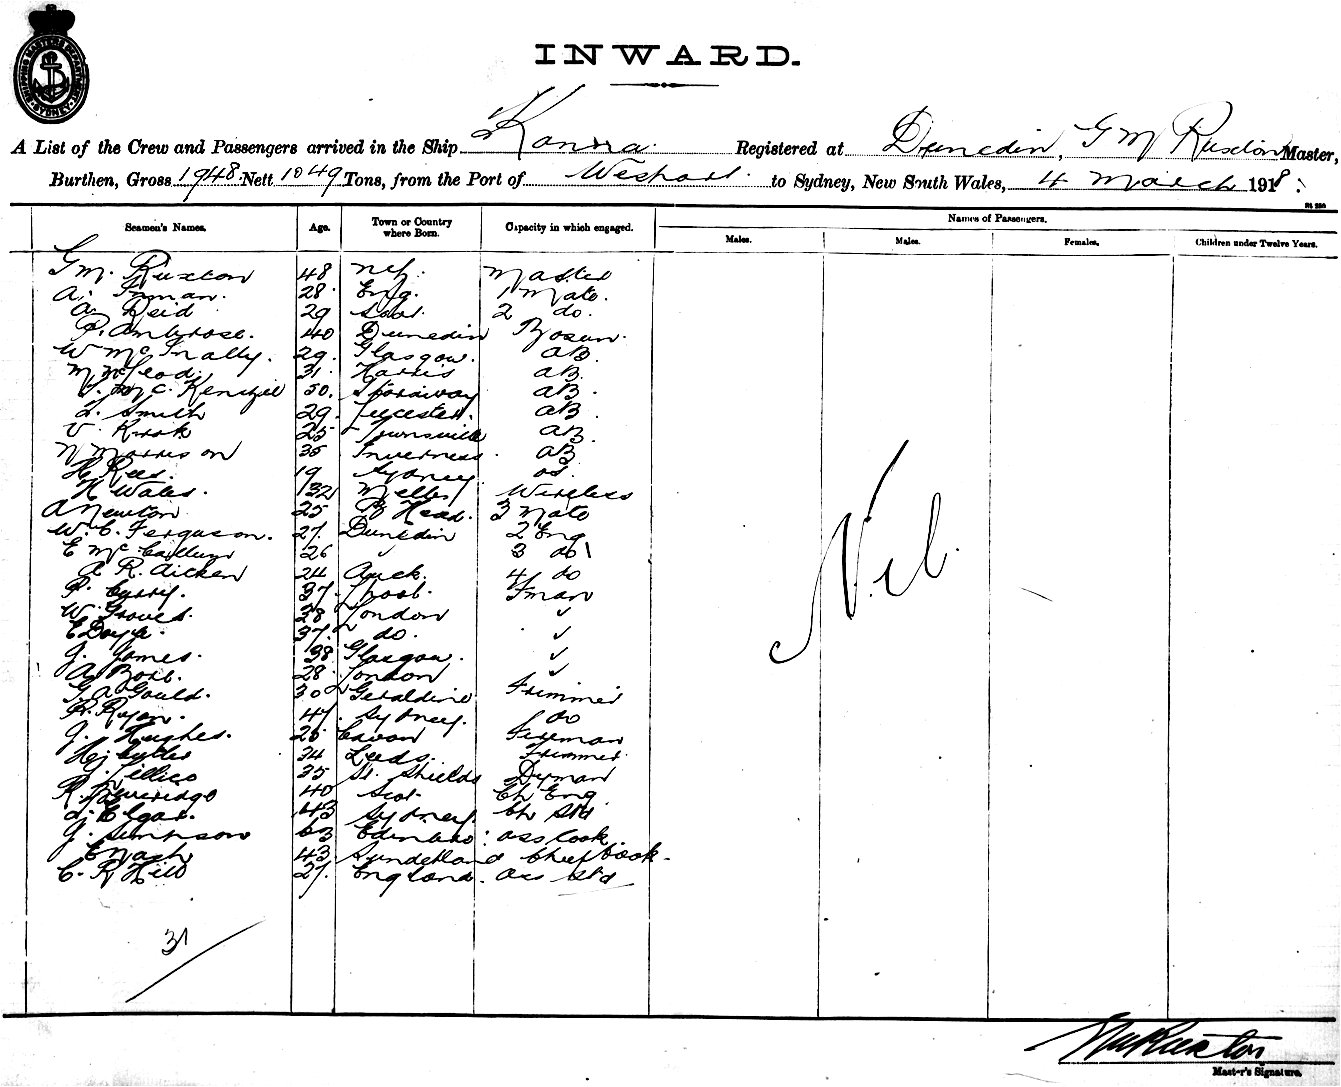 SHIPPING MASTERS DEPARTMENT SYDNEY
INWARD.
A List of the Crew and Passengers arrived in the Ship Registered at Dunedin, G M Ruxton Master,
Burthen, Gross 1948 Nett 1049 Tons, from the Port of Westport to Sydney, New South Wales, 4 March 1918.
Seamen's Names. Age. Town or Country where Born. Capacity in which engaged. Names of Passengers.
Males. Males. Females. Children under Twelve Years.
G M. Ruxton 48 Master
A. Inman. 28 Eng. 1 Mate.
A Reid 29 Scot. 2 do.
P. Ambrose. 40 Dunedin Bosun.
W McInally. 29. Glasgow. AB.
M McLeod. 31. Harris AB.
McKenzie 50. Stornoway AB.
L. Smith 29. Leicester. AB.
V. 25 Townsville AB.
N Morrison 35 Inverness. AB
H Rees. 19 Sydney. os.
H Wales. 32 Wireless
A Newton 25 B Head. 3 Mate
W. C. Ferguson. 27. Dunedin 2 Eng
E McCallum 26 " 3 do
A R. Aicken 24 Auck. 4 do
P. 37. Fman
W. Groves. 38 London "
E Doyle. 37. do. "
J. James. 38 Glasgow. "
A 28. London "
G. A Gould. 30 Geraldine Trimmer
R. Ryan. 47. Sydney. do
J. Hughes. 25 Cavan Fireman
34 Leeds. Trimmer
J. Jellico 35 St. Shields Dyman
R. 40 Scot. Ch Eng
L. Elgar. 43 Sydney. Ch Std
J. Simpson 63 Edinburo: ass Cook.
E Nash 43. Sunderland Chief Cook.
C. R Hill 27. England. Ass Std
Nil.
31
G M Ruxton
Master's Signature.